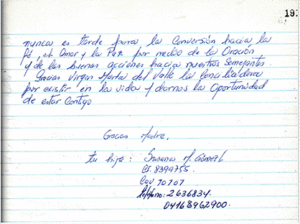 192
nunca es tarde para la Conversión hacia la
el Amor y la Paz por medio de la Oración
y de las buenas acciones hacia nuestros semejantes.
Gracias Virgen del Valle la
por existir en las vidas y darnos la Oportunidad
de estar Contigo
Gracias Madre.
tu hija: Susana
CI. 8399755.
COV 10707
2636834
04168962900.